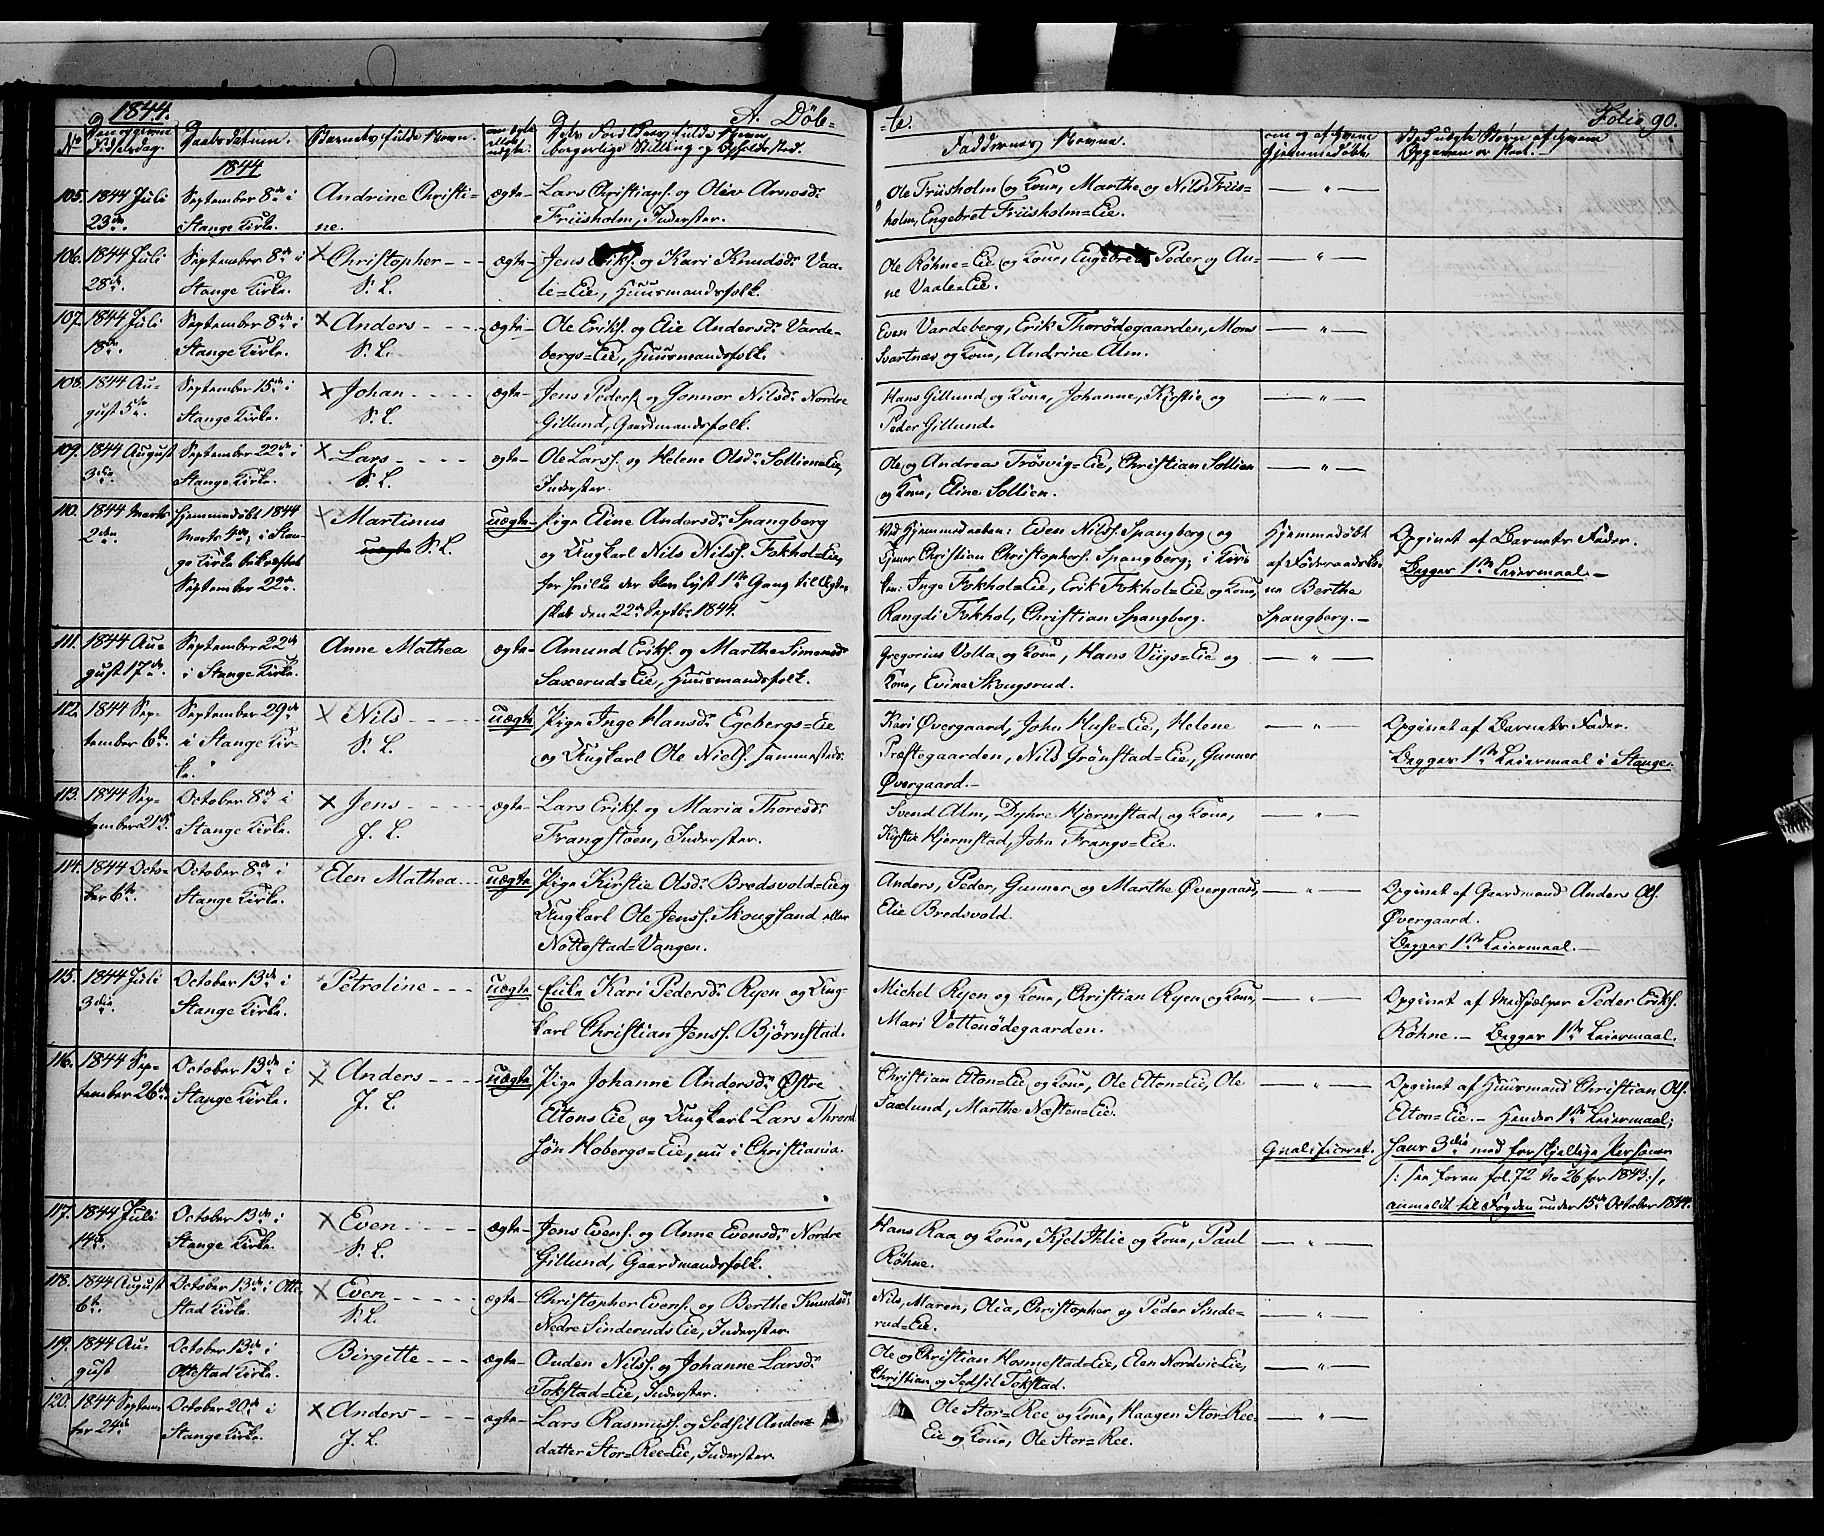 1844.
A. Døb=
=te.
Folio 90.
No
Den opgivne Fødselsdag.
Daabsdatum.
Barnets fulde Navn.
om ægte eller uægte.
Dets Forældres fulde Navn, borgerlige Stilling og Opholdssted.
Faddernes Navne.
om og af hvem hjemmedøbt.
Ved uægte Børn af hvem Opgaven er skeet.
1844
105. 1844 Juli 23de.
September 8de i Stange Kirke.
Andrine Christine.
ægte
Lars Christians. og Olea Arnesd. Friisholm, Inderster.
Ole Friisholm og Kone, Marthe og Nils Friisholm, Engebret Friisholm=Eie.
— " —
106. 1844 Juli 28de.
September 8de i Stange Kirke.
× Christopher S. L.
ægte
Jens Eriks. og Kari Knudsd. Vaale=Eie, Huusmandsfolk.
Ole Røhne=Eie og Kone, Engebret, Peder og Anne Vaale=Eie.
— " —
107. 1844 Juli 18de.
September 8de i Stange Kirke.
× Anders S. L.
ægte
Ole Eriks. og Elie Andersd. Vardebergs=Eie, Huusmandsfolk.
Even Vardeberg, Erik Thorødegaarden, Mons Svartnæs og Kone, Andrine Alm.
— " —
108. 1844 August 5te.
September 15de i Stange Kirke.
× Johan S. L.
ægte
Jens Peders. og Gonnor Nilsd. Nordre Gillund, Gaardmandsfolk.
Hans Gillund og Kone, Johanne, Kirstie og Peder Gillund.
— " —
109. 1844 August 3die.
September 22de i Stange Kirke.
× Lars S. L.
ægte
Ole Larss. og Helene Olsd. Sollien=Eie, Inderster.
Ole og Andreas Frøsvig=Eie, Christian Sollien og Kone, Eline Sollien.
— " —
110. 1844 Marts 2den
Hjemmedøbt 1844 Marts 4de, i Stange Kirke bekræftet September 22de.
× Martinus uægte S. L.
uægte
Pige Eline Andersd. Spangberg og Ungkarl Nils Nilss. Fokhol=Eie, for hvilke der blev lyst 1ste Gang til Ægteskab den 22de Septbr. 1844.
Ved Hjemmedaaben: Even Nilss. Spangberg og Christian Christophers. Spangberg; i Kirken: Inge Fokhol=Eie, Erik Fokhol=Eie og Kone, Rangdi Fokhol, Christian Spangberg.
Hjemmedøbt af Føderaadskone Berthe Spangberg.
Opgivet af Barnets Fader. Begges 1ste Leiermaal.
111. 1844 August 17de.
September 22de i Stange Kirke.
Anne Mathea
ægte
Amund Eriks. og Marthe Simensd. Saxerud=Eie, Huusmandsfolk.
Gregorius Volla og Kone, Hans Viigs=Eie og Kone, Evine Skougsrud.
— " —
112. 1844 September 6te.
September 29de i Stange Kirke.
× Nils S. L.
uægte
Pige Inge Hansd. Egebergs=Eie og Ungkarl Ole Niels. sammesteds.
Kari Øvergaard, John Huse=Eie, Helene Præstegaarden, Nils Grønstad=Eie, Gunner Øvergaard.
— " —
Opgivet af Barnets Fader. Begges 1ste Leiermaal i Stange.
113. 1844 September 21de.
October 8de i Stange Kirke.
× Jens J. L.
ægte
Lars Eriks. og Maria Thoresd. Frangstøen, Inderster.
Svend Alm, Dyhre Hjermstad og Kone, Kirstie Hjermstad, John Frangs=Eie.
— " —
114. 1844 October 6te.
October 8de i Stange Kirke.
Elen Mathea
uægte
Pige Kirstie Olsd. Bredsvold=Eie, Ungkarl Ole Jenss. Skougsand eller Nøttestad=Vangen.
Anders, Peder, Gunner og Marthe Øvergaard, Elie Bredsvold.
— " —
Opgivet af Gaardmand Anders Ols. Øvergaard. Begges 1ste Leiermaal.
115. 1844 Juli 3die.
October 13de i Stange Kirke.
Petroline
uægte
Enke Kari Pedersd. Ryen og Ungkarl Christian Jenss. Bjørnstad.
Michel Ryen og Kone, Christian Ryen og Kone, Mari Vettenødegaarden.
— " —
Opgivet af Medhjelper Peder Eriks. Røhne. Begges 1ste Leiermaal.
116. 1844 September 26de
October 13de i Stange Kirke.
× Anders J. L.
uægte
Pige Johanne Andersd. Østre Eltons Eie og Ungkarl Lars Throndsøn Hobergs=Eie, nu i Christiania.
Christian Elton=Eie og Kone, Ole Elton=Eie, Ole Saxlund, Marthe Næsten=Eie.
— " —
Qualificeret.
Opgivet af Huusmand Christian Ols. Elton=Eie. Hendes 1ste Leiermaal; hans 3die med forskjellige Personer /: see foran fol. 72 No 26 for 1843 :/, anmeldt til Fogden under 15de October 1844.
117. 1844 Juli 14de.
October 13de i Stange Kirke.
× Even S. L.
ægte
Jens Evens. og Anne Evensd. Nordre Gillund, Gaardmandsfolk.
Hans Raa og Kone, Kjel Ihlie og Kone, Paul Røhne.
— " —
118. 1844 August 6te.
October 13de i Ottestad Kirke.
× Even S. L.
ægte
Christopher Evens. og Berthe Knudsd. Nedre Sinderuds Eie, Inderster.
Nils, Maren, Olia, Christopher og Peder Sinderud=Eie.
— " —
119. 1844 August
October 13de i Ottestad Kirke.
Birgitte
ægte
Ouden Nilss. og Johanne Larsd. Tokstad=Eie, Inderster.
Ole og Christian Hosmestad=Eie, Elen Nordvie=Eie, Christian og Sedsil Tokstad.
— " —
120. 1844 September 24de
October 20de i Stange Kirke.
× Anders J. L.
ægte
Lars Rasmuss. og Sedsil Andersdatter Stor=Ree=Eie, Inderster.
Ole Stor=Ree og Kone, Haagen Stor=Ree=Eie og Kone, Ole Stor=Ree.
— " —